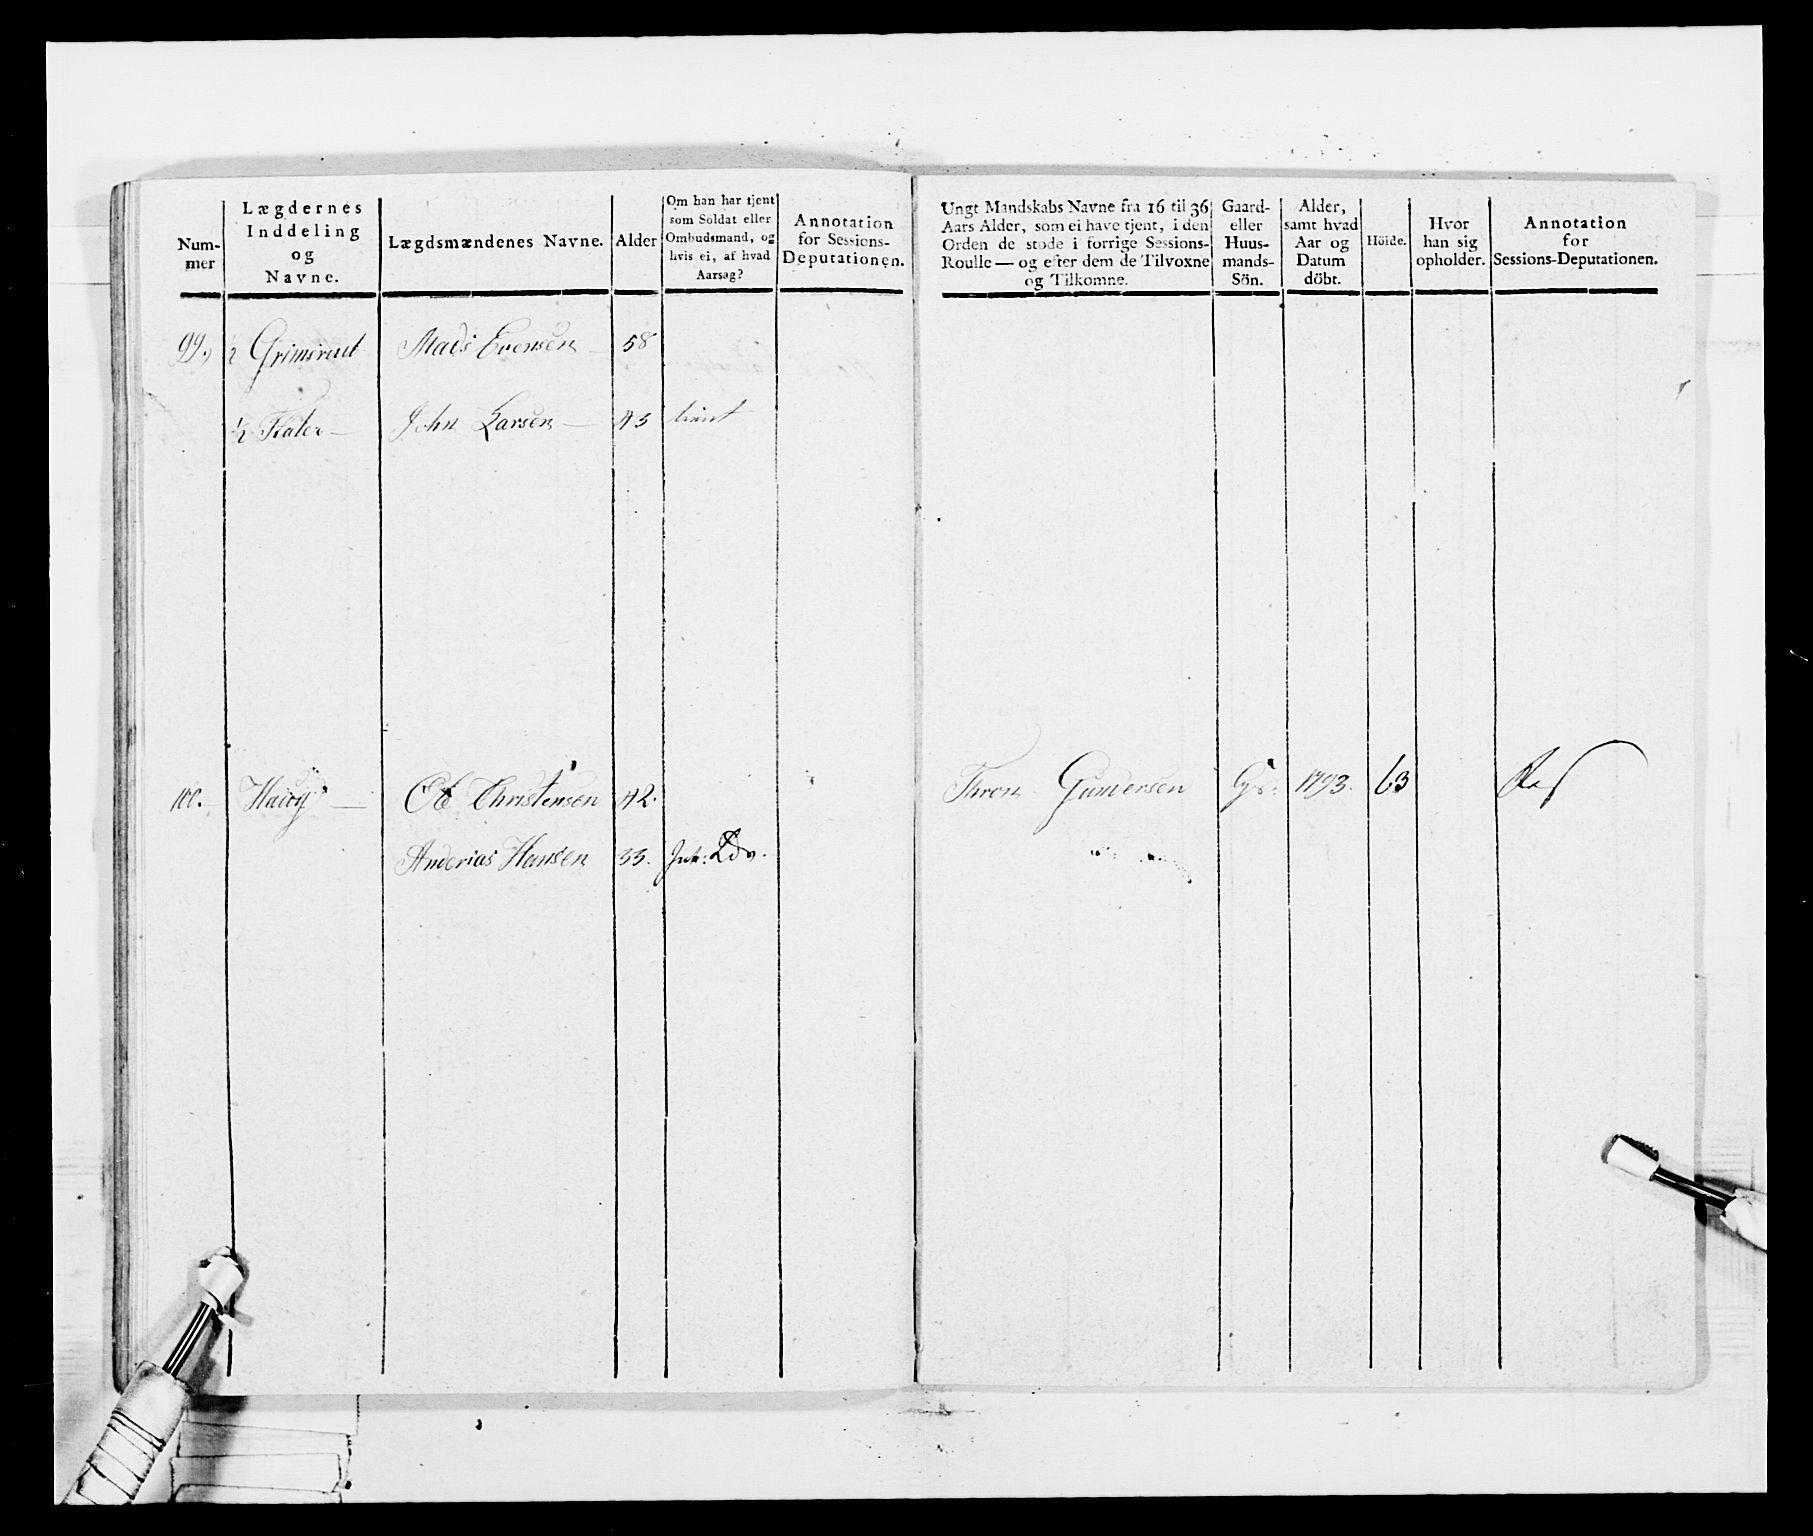 Num-
mer
Lægdernes
Inddeling
og
Navne.
Lægdsmændenes Navne.
Alder
Om han har tjent
som Soldat eller
Ombudsmand, og
hvis ei, af hvad
Aarsag?
Annotation
for Sessions-
Deputationen.
Ungt Mandskabs Navne fra 16 til 36
Aars Alder, som ei have tjent, i den
Orden de stode i forrige Sessions-
Roulle — og efter dem de Tilvoxne
og Tilkomne.
Gaard-
eller
Huus-
mands-
Sön.
Alder,
samt hvad
Aar og
Datum
döbt.
Höide.
Hvor
han sig
opholder.
Annotation
for
Sessions-Deputationen.
99. Grimsrud Mads Evensen 58
1/2 John Larsen 43 tient
100. Houg Ole Christensen 42. Thron Gundersen Gs: 1793. 63
Anderias Hansen 33.